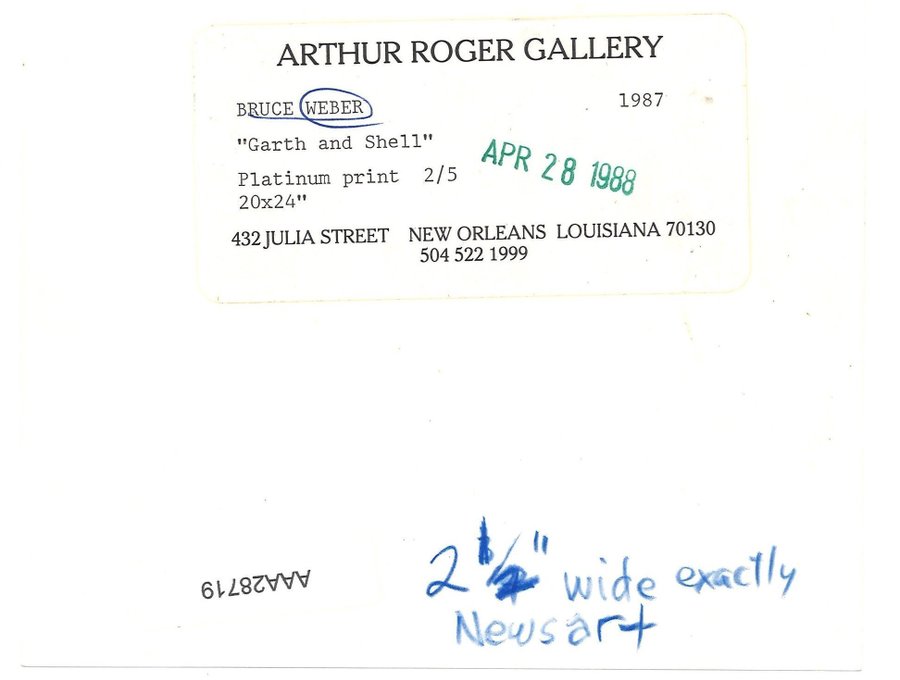 ARTHUR ROGER GALLERY
BRUCE WEBER 1987
"Garth and Shell"
APR 28 1988
Platinum print 2/5
20x24"
432 JULIA STREET NEW ORLEANS LOUISIANA 70130
504 522 1999
AAA28719
2 1/2" wide exactly
Newsart